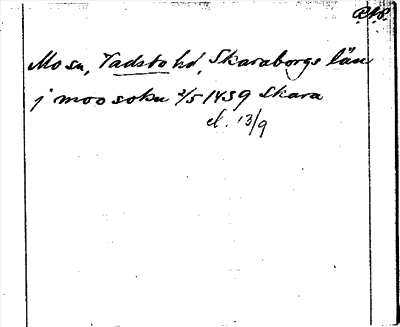 Mo sn, Vadsbo hd, Skaraborgs län
j moo sokn 2/5 1459 Skara
el. 13/9